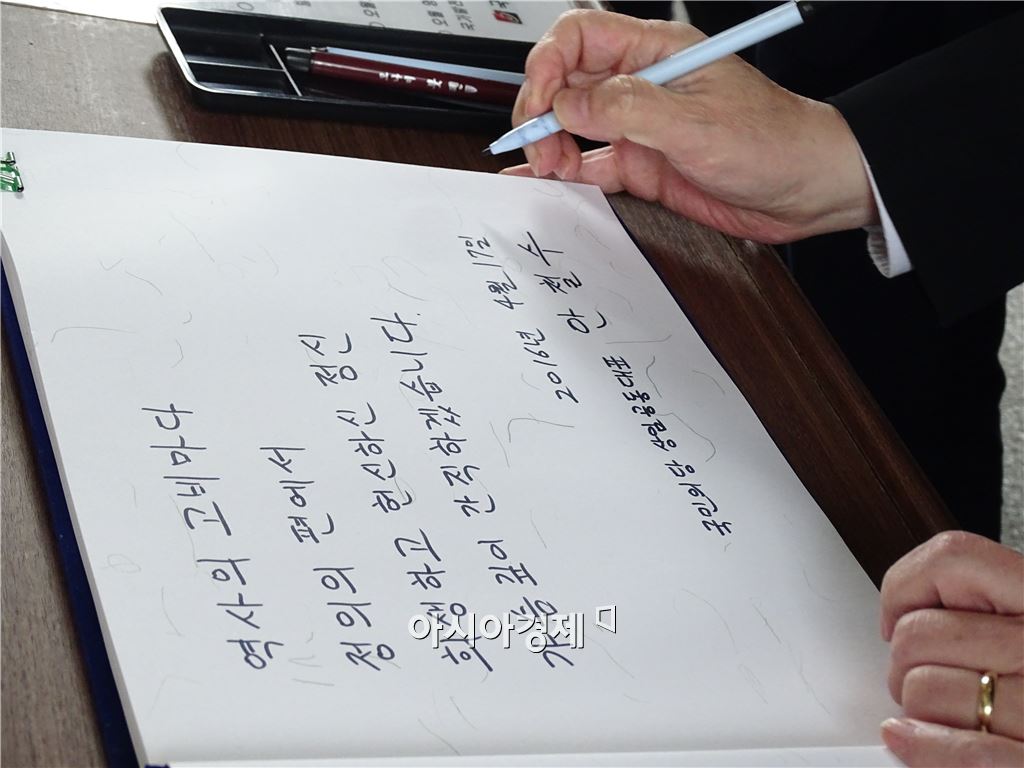 역사의 고비마다
정의의 편에서
희생하고 헌신하신 정신
가슴 깊이 간직하겠습니다.
2016년 4월 17일
안 철 수
국민의당 상임공동대표
아시아경제